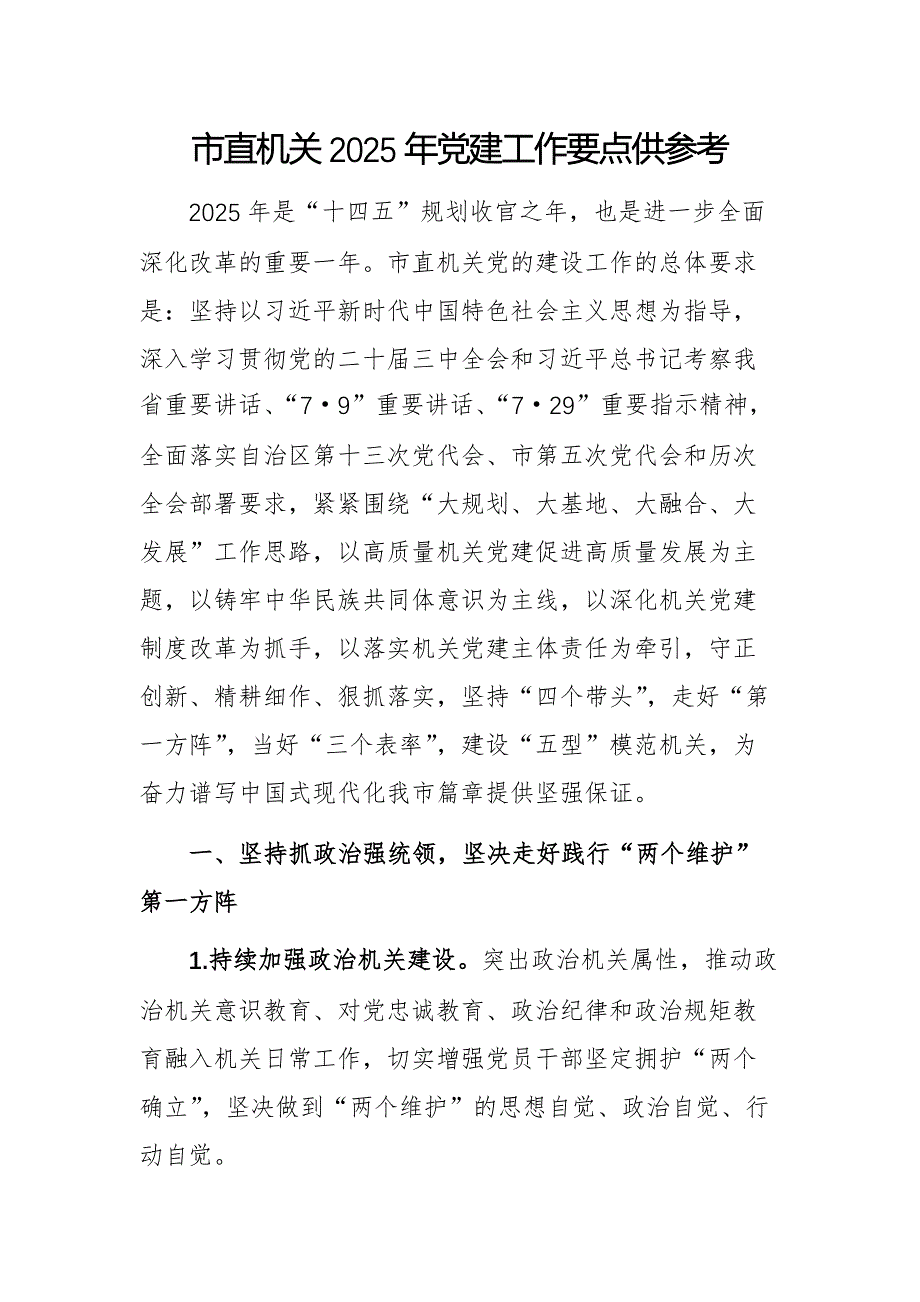 市直机关 2025 年党建工作要点供参考
2025 年是“十四五”规划收官之年，也是进一步全面
深化改革的重要一年。市直机关党的建设工作的总体要求
是：坚持以习近平新时代中国特色社会主义思想为指导，
深入学习贯彻党的二十届三中全会和习近平总书记考察我
省重要讲话、“7·9”重要讲话、“7·29”重要指示精神，
全面落实自治区第十三次党代会、市第五次党代会和历次
全会部署要求，紧紧围绕“大规划、大基地、大融合、大
发展”工作思路，以高质量机关党建促进高质量发展为主
题，以铸牢中华民族共同体意识为主线，以深化机关党建
制度改革为抓手，以落实机关党建主体责任为牵引，守正
创新、精耕细作、狠抓落实，坚持“四个带头”，走好“第
一方阵”，当好“三个表率”，建设“五型”模范机关，为
奋力谱写中国式现代化我市篇章提供坚强保证。
一、坚持抓政治强统领，坚决走好践行“两个维护”
第一方阵
1.持续加强政治机关建设。突出政治机关属性，推动政
治机关意识教育、对党忠诚教育、政治纪律和政治规矩教
育融入机关日常工作，切实增强党员干部坚定拥护“两个
确立”，坚决做到“两个维护”的思想自觉、政治自觉、行
动自觉。